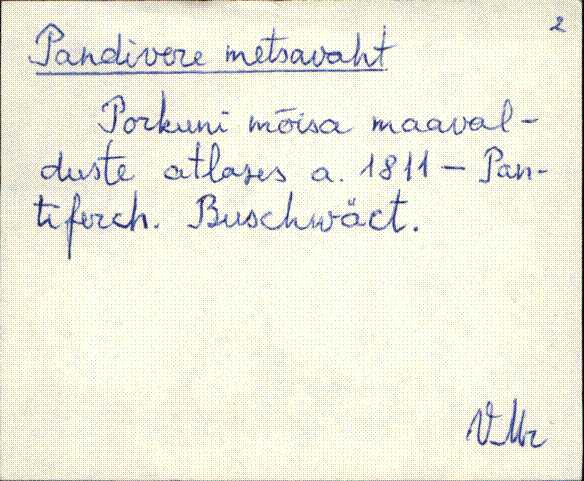 2
Pandivere metsavaht
Porkuni mõisa maaval-
duste atlases a. 1811 – Pan-
tiferch. Buschwäct.
VMr